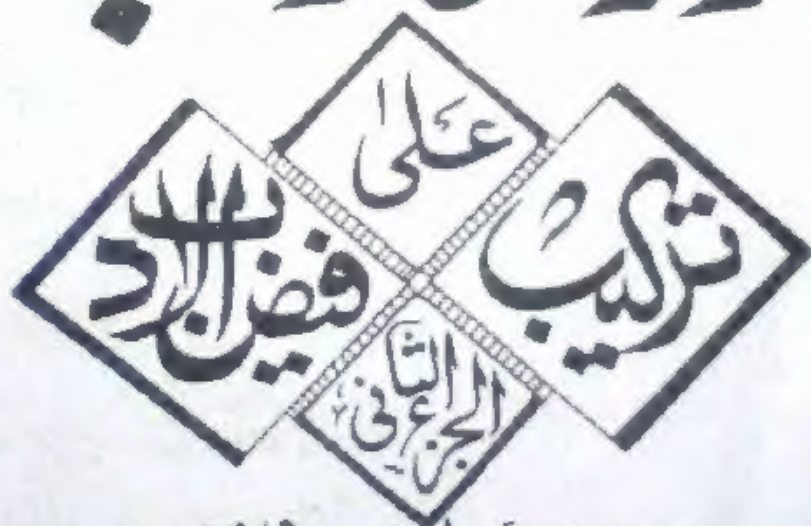 تركيب
على
فيض الادب
الجزء الثاني